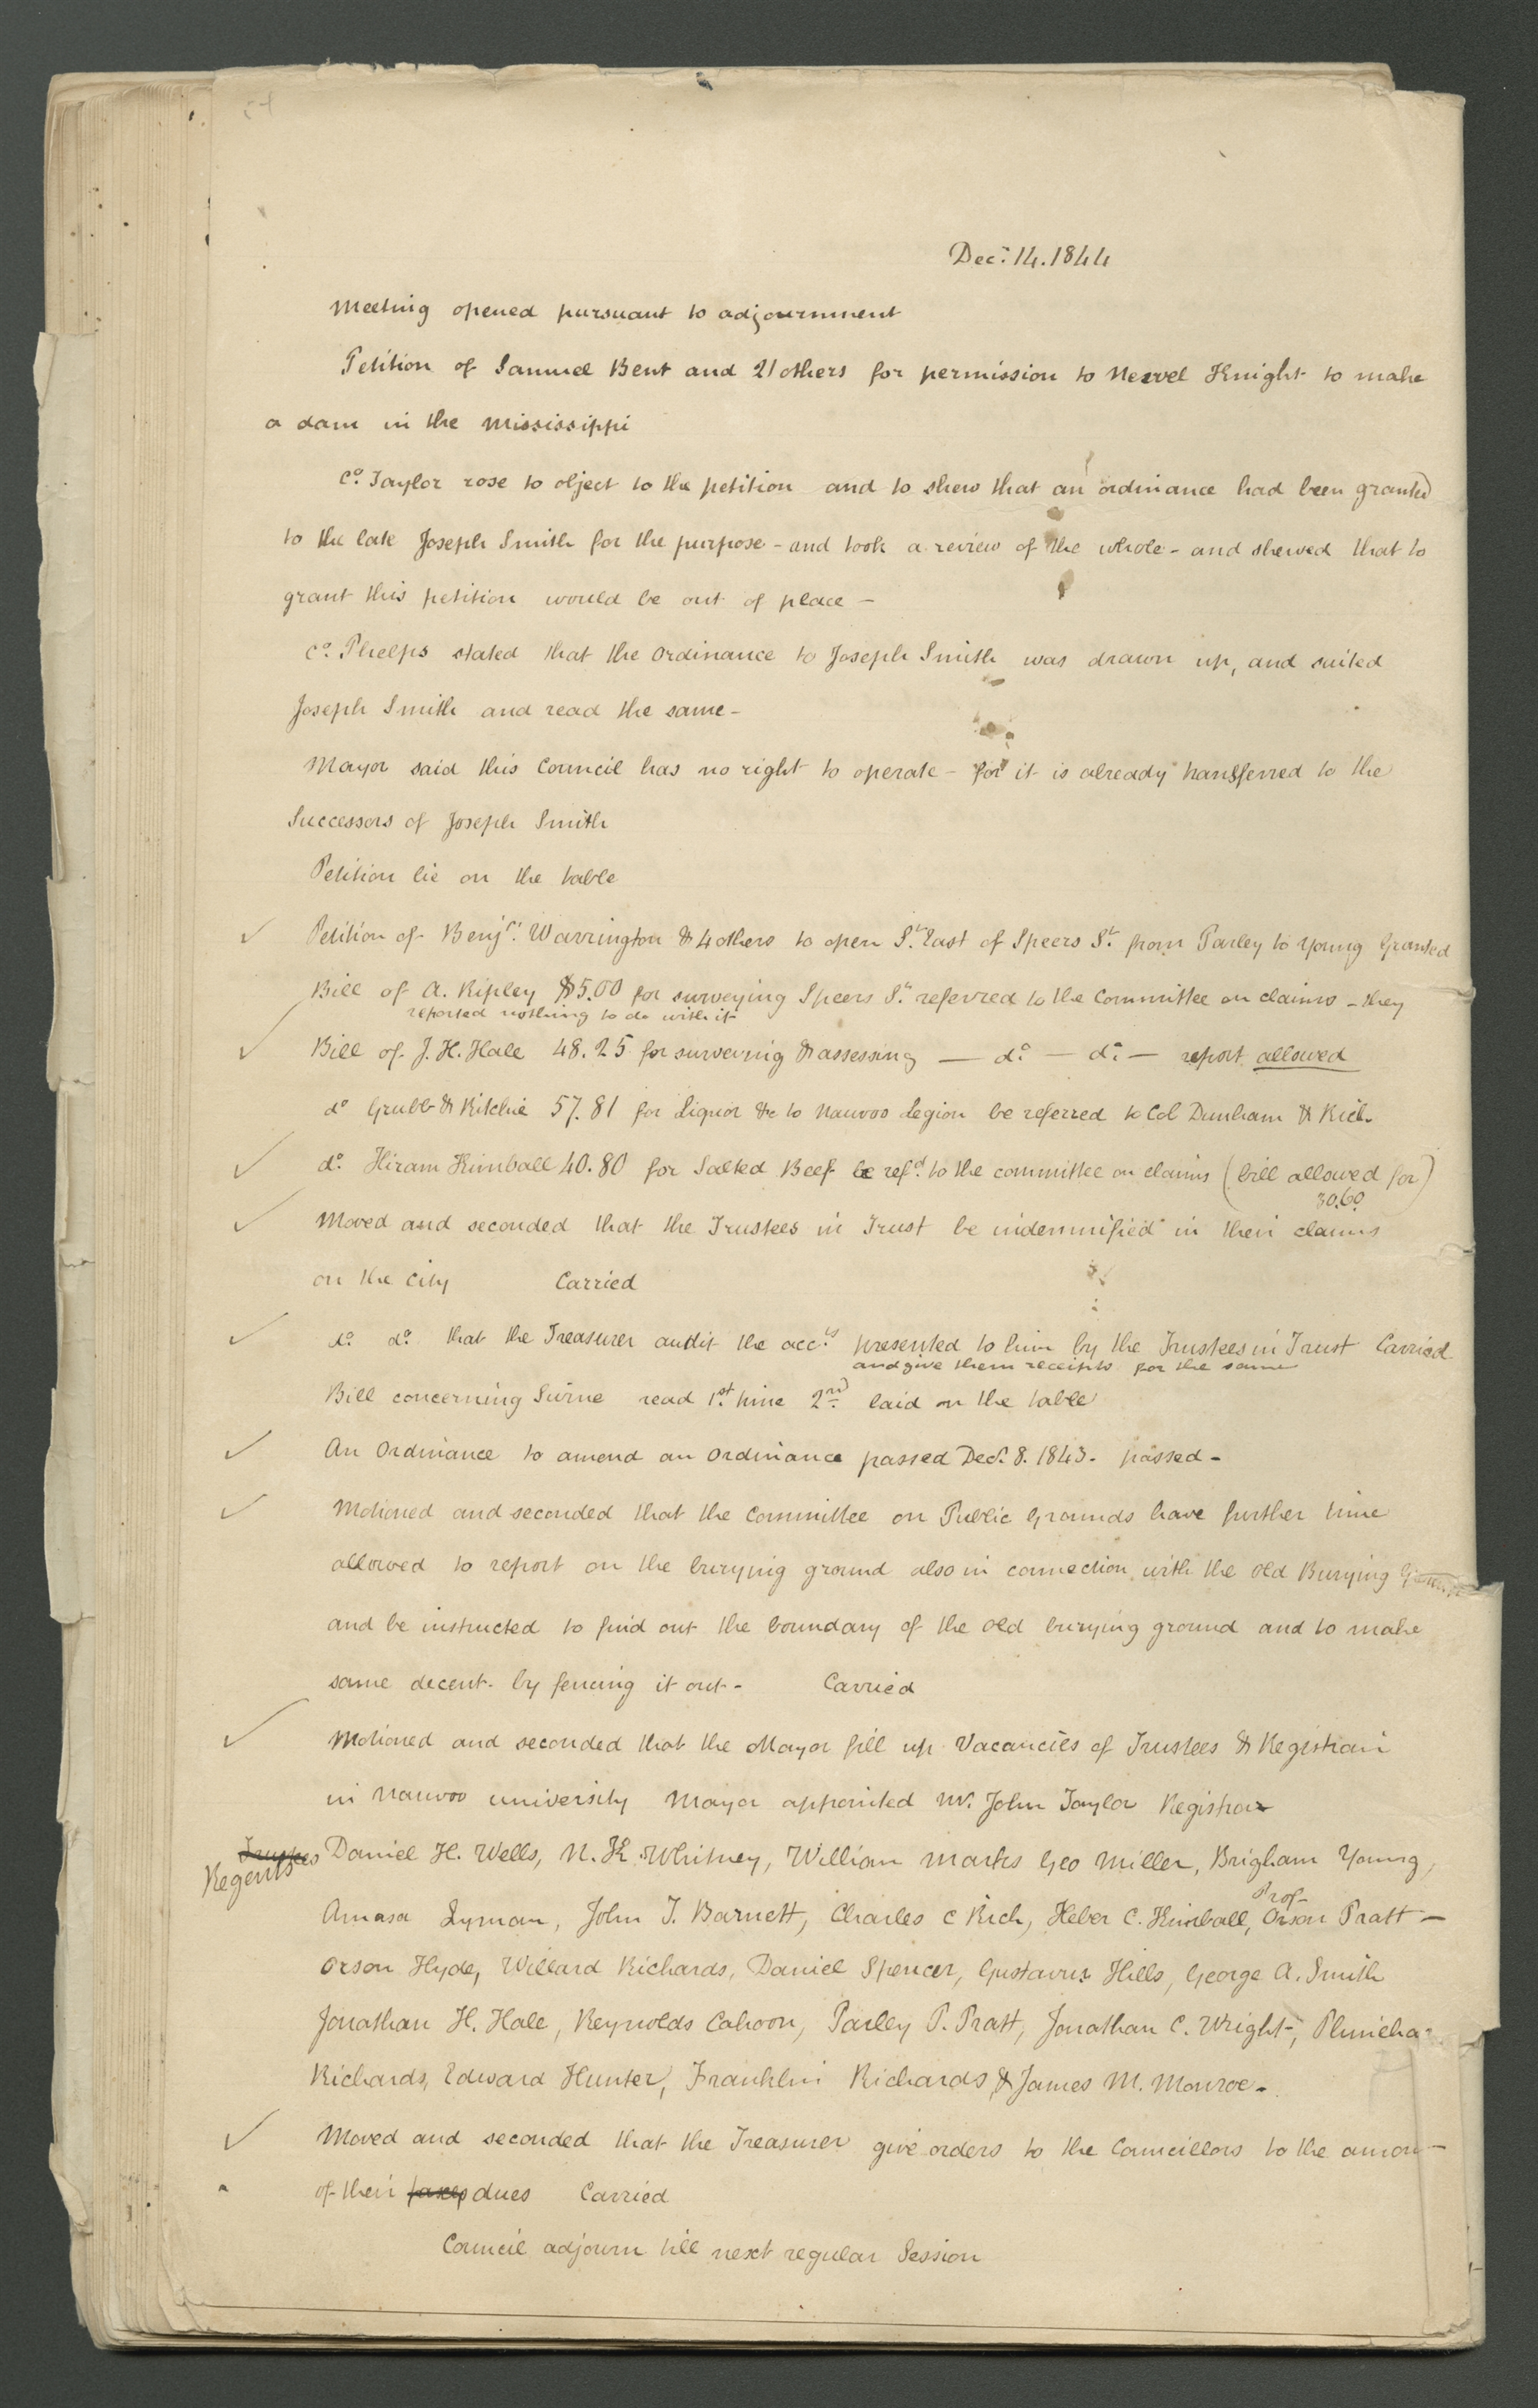 Decr. 14. 1844
Meeting opened pursuant to adjournment
Petition of Samuel Bent and 21 others for permission to Newel Knight to make
a dam in the Mississippi
Co. Taylor rose to object to the petition and to shew that an ordinance had been granted
to the late Joseph Smith for the purpose - and took a review of the whole - and shewed that to
grant this petition would be out of place -
Co. Phelps stated that the ordinance to Joseph Smith was drawn up, and suited
Joseph Smith and read the same -
Mayor said this Council has no right to operate - for it is already transferred to the
Successors of Joseph Smith
Petition lie on the table
✓ Petition of Benjn. Warrington & 4 others to open St. East of Speers St. from Parley to Young Granted
Bill of A. Ripley $5.00 for surveying Speers St. referred to the Committee on claims - they
reported nothing to do with it
✓ Bill of J. H. Hale 48.25 for surveying & assessing — do. — do. — report allowed
do Grubb & Ritchie 57.81 for Liquor &c to Nauvoo Legion be referred to Col Dunham & Rich
✓ do. Hiram Kimball 40.80 for Salted Beef be refd. to the committee on claims (bill allowed for)
30.60
✓ Moved and seconded that the Trustees in Trust be indemnified in their claims
on the City Carried
✓ do. do. that the Treasurer audit the accts. presented to him by the Trustees in Trust Carried
and give them receipts for the same
Bill concerning Swine read 1st. time 2nd. laid on the table
✓ An Ordinance to amend an ordinance passed Decr. 8. 1843. passed -
✓ Motioned and seconded that the Committee on Public Grounds have further time
allowed to report on the burying ground also in connection with the old Burying
and be instructed to find out the boundary of the old burying ground and to make
same decent - by fencing it out - Carried
✓ Motioned and seconded that the Mayor fill up Vacancies of Trustees & Registrar
in Nauvoo university Mayor appointed Mr. John Taylor Registrar
Trustees Daniel H. Wells, N. K. Whitney, William Marks Geo Miller, Brigham Young,
Regents
Prof-
Amasa Lyman, John T. Barnett, Charles C Rich, Heber C. Kimball, Orson Pratt -
Orson Hyde, Willard Richards, Daniel Spencer, Gustavus Hills, George A. Smith
Jonathan H. Hale, Reynolds Cahoon, Parley P. Pratt, Jonathan C. Wright, Phinehas
Richards, Edward Hunter, Franklin Richards, & James M. Monroe -
✓ Moved and seconded that the Treasurer give orders to the Councillors to the amou
of their taxes dues Carried
Council adjourn till next regular Session